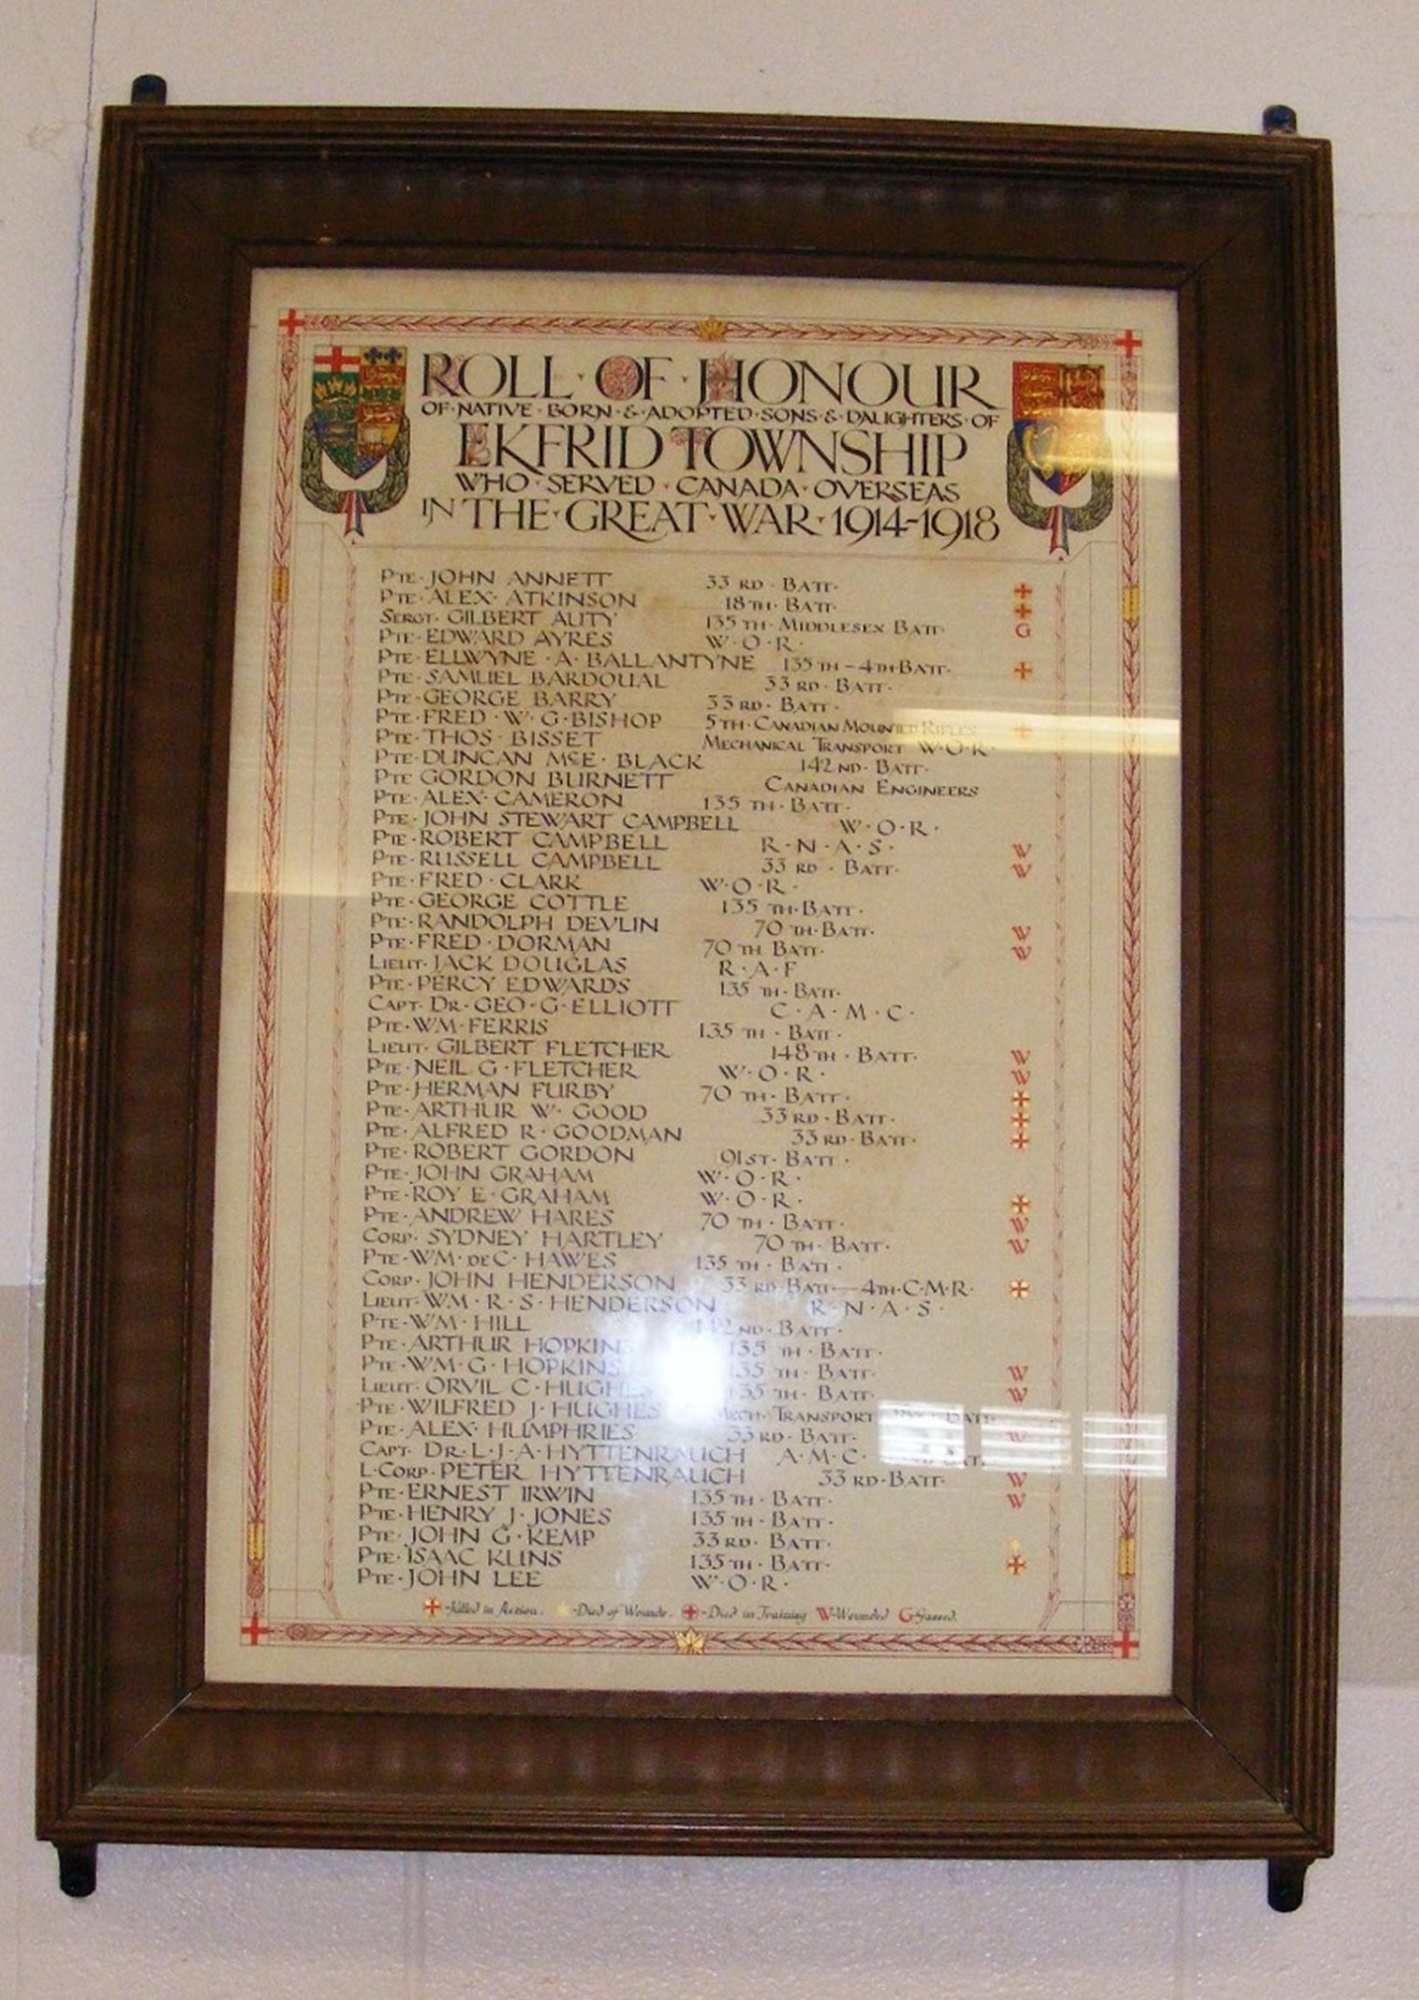 ROLL · OF · HONOUR
OF · NATIVE · BORN · & · ADOPTED · SONS · & · DAUGHTERS · OF
EKFRID TOWNSHIP
WHO · SERVED · CANADA · OVERSEAS
IN THE · GREAT · WAR · 1914-1918
PTE · JOHN ANNETT 33 RD · BATT ·
PTE · ALEX · ATKINSON 18TH · BATT ·
SERGT · GILBERT AUTY 135 TH · MIDDLESEX BATT · G
PTE · EDWARD AYRES W · O · R ·
PTE · ELLWYNE · A · BALLANTYNE 135 TH - 4TH BATT ·
PTE · SAMUEL BARDOUAL 33 RD · BATT ·
PTE · GEORGE BARRY 33 RD · BATT ·
PTE · FRED · W · G · BISHOP 5TH · CANADIAN MOUNTED RIFLES
PTE · THOS · BISSET MECHANICAL TRANSPORT W · O · R ·
PTE · DUNCAN McE · BLACK 142 ND · BATT ·
PTE GORDON BURNETT CANADIAN ENGINEERS
PTE · ALEX · CAMERON 135 TH · BATT ·
PTE · JOHN STEWART CAMPBELL W · O · R ·
PTE · ROBERT CAMPBELL R · N · A · S · W
PTE · RUSSELL CAMPBELL 33 RD · BATT · W
PTE · FRED · CLARK W · O · R ·
PTE · GEORGE COTTLE 135 TH · BATT ·
PTE · RANDOLPH DEVLIN 70 TH · BATT · W
PTE · FRED · DORMAN 70 TH BATT · W
LIEUT · JACK DOUGLAS R · A · F
PTE · PERCY EDWARDS 135 TH · BATT ·
CAPT · DR · GEO · G · ELLIOTT C · A · M · C ·
PTE · WM · FERRIS 135 TH · BATT ·
LIEUT · GILBERT FLETCHER 148 TH · BATT · W
PTE · NEIL G · FLETCHER W · O · R · W
PTE · HERMAN FURBY 70 TH · BATT ·
PTE · ARTHUR W · GOOD 33 RD · BATT ·
PTE · ALFRED R · GOODMAN 33 RD · BATT ·
PTE · ROBERT GORDON 91ST · BATT ·
PTE · JOHN GRAHAM W · O · R ·
PTE · ROY E · GRAHAM W · O · R ·
PTE · ANDREW HARES 70 TH · BATT · W
CORP · SYDNEY HARTLEY 70 TH · BATT · W
PTE · WM · DEC · HAWES 135 TH · BATT ·
CORP · JOHN HENDERSON 33 RD · BATT - 4TH · C · M · R ·
LIEUT · WM · R · S · HENDERSON R · N · A · S ·
PTE · WM · HILL 142 ND · BATT ·
PTE · ARTHUR HOPKINS 135 TH · BATT ·
PTE · WM · G · HOPKINS 135 TH · BATT · W
LIEUT · ORVIL C · HUGHES 135 TH · BATT · W
PTE · WILFRED J · HUGHES MECH · TRANSPORT BATT ·
PTE · ALEX · HUMPHRIES 33 RD · BATT · W
CAPT · DR · L · J · A · HYTTENRAUCH A · M · C ·
L · CORP · PETER HYTTENRAUCH 33 RD · BATT · W
PTE · ERNEST IRWIN 135 TH · BATT · W
PTE · HENRY J · JONES 135 TH · BATT ·
PTE · JOHN G · KEMP 33 RD · BATT ·
PTE · ISAAC KUNS 135 TH · BATT ·
PTE · JOHN LEE W · O · R ·
-Killed in Action. -Died of Wounds. -Died in Training W-Wounded G-Gassed.